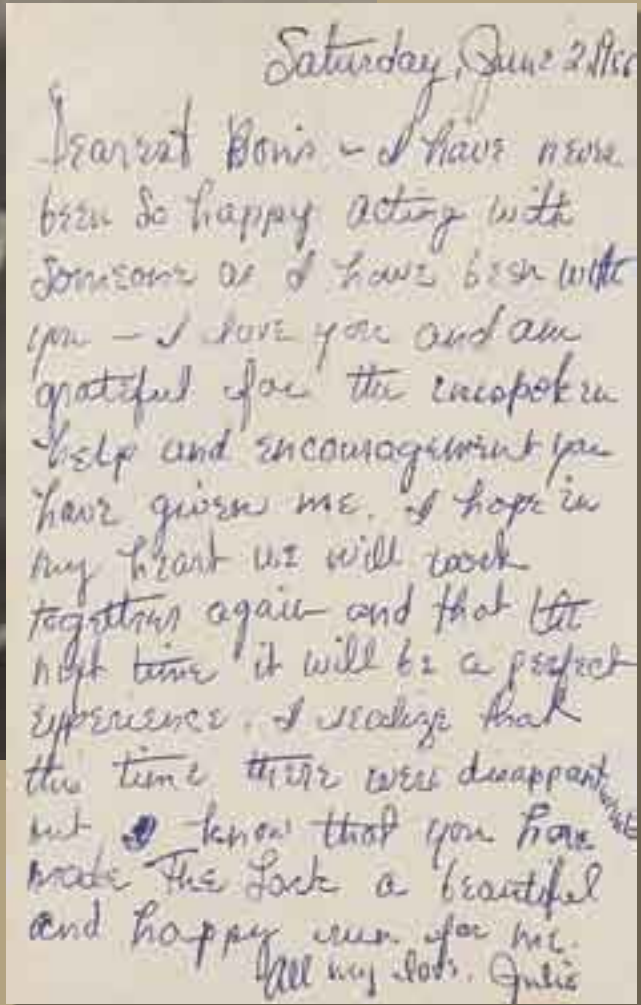 Saturday, June 2
Dearest Boris – I have never
been so happy acting with
someone as I have been with
you – I love you and am
grateful for the unspoken
help and encouragement you
have given me. I hope in
my heart we will work
together again and that the
next time it will be a perfect
experience. I realize that
this time there were disappointments
but I know that you have
made The Lark a beautiful
and happy run for me.
All my love. Julie